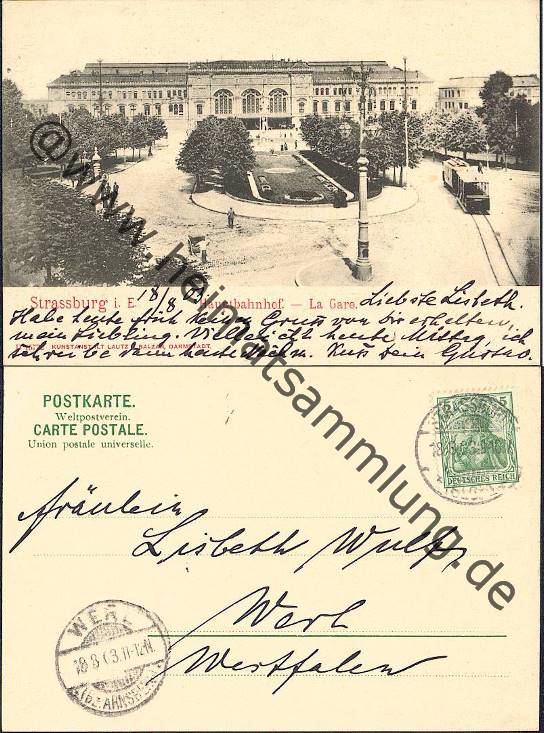 Strassburg i. E. 18/8 Hauptbahnhof. — La Gare. Liebste Lisbeth.
Habe heute früh keinen Gruss von Dir erhalten,
mein Liebling. Vielleicht heute Mittag, ich
schreibe dann heute Kuss Dein Gustav.
KUNSTANSTALT LAUTZ & BALZAR, DARMSTADT.
@www.heimatsammlung.de
POSTKARTE.
Weltpostverein.
CARTE POSTALE.
Union postale universelle.
5
DEUTSCHES REICH
STRASSBURG
Fräulein
Lisbeth Wulff
Werl
Westfalen
WERL
18.8.03.11-12N.
(Bz. ARNSBERG)